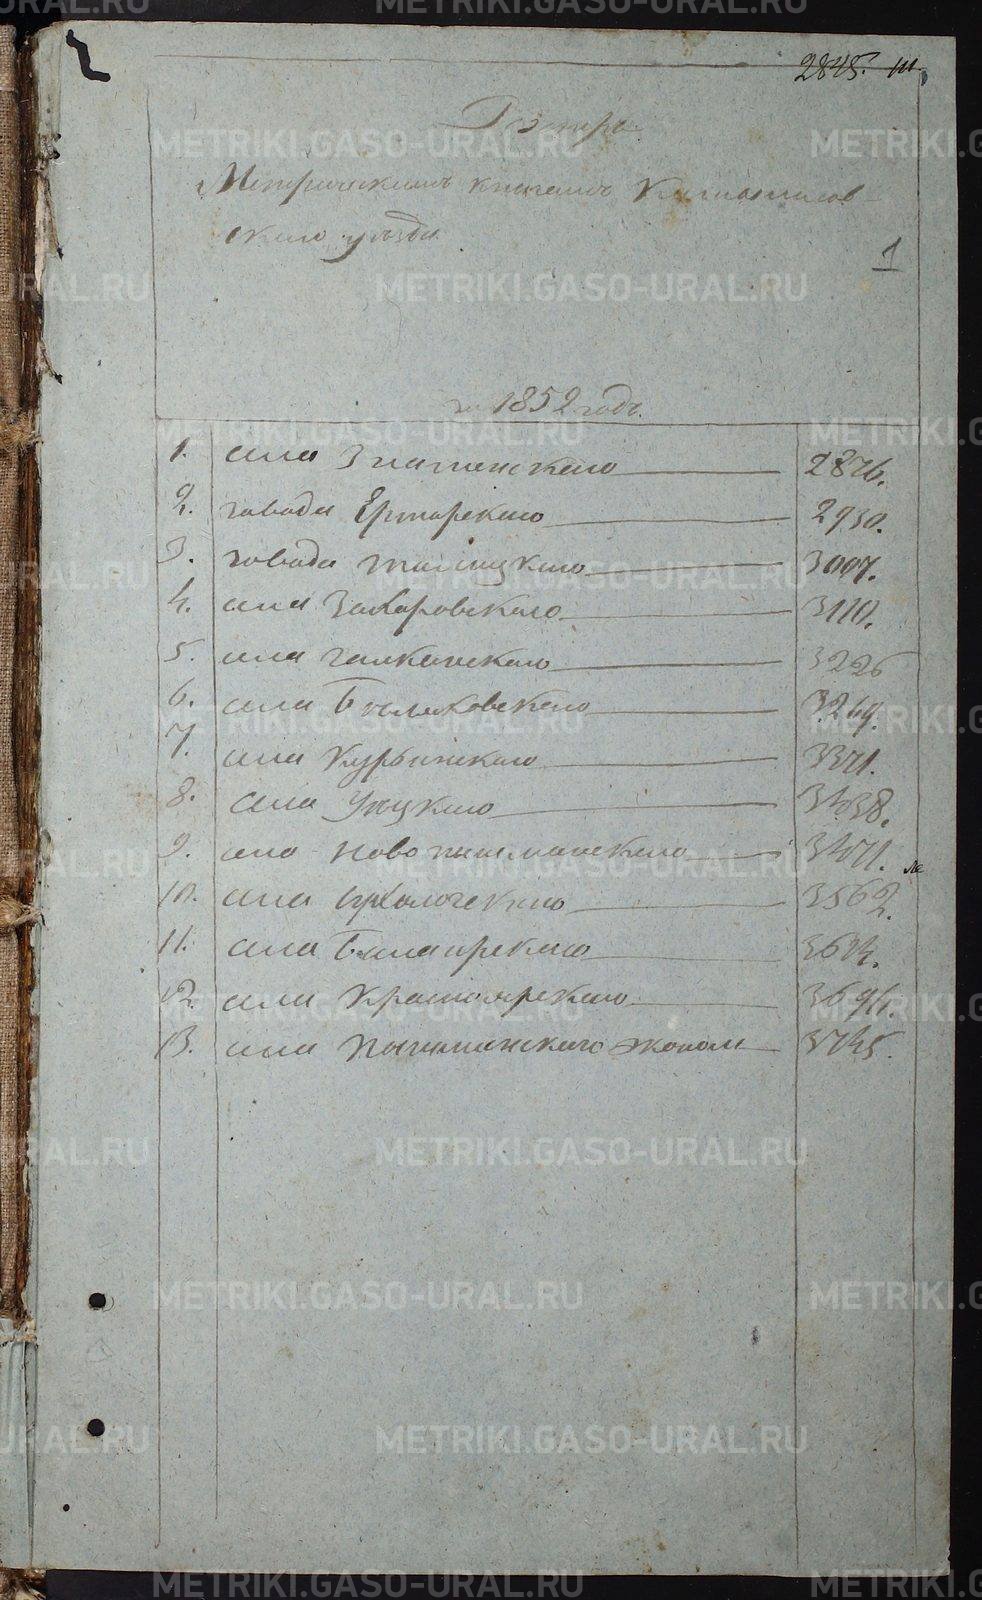 2845.
Реэстръ
Метрическимъ книгамъ Камышлов-
скаго уезда
1
на 1852 годъ.
1. села Знаменскаго 2876.
2. завода Ертарскаго 2930.
3. завода Талицкаго 3007.
4. села Захаровскаго 3110.
5. села Галкинскаго 3226
6. села 3264.
7. села Курьинскаго 3371.
8. села Уецкаго 3438.
9. села Новопышминскаго 3471.
10. села 3562.
11. села Балаирскаго 3614.
12. села Красноярскаго 3691.
13. села Пышминскаго эконом 3745.
METRIKI.GASO-URAL.RU